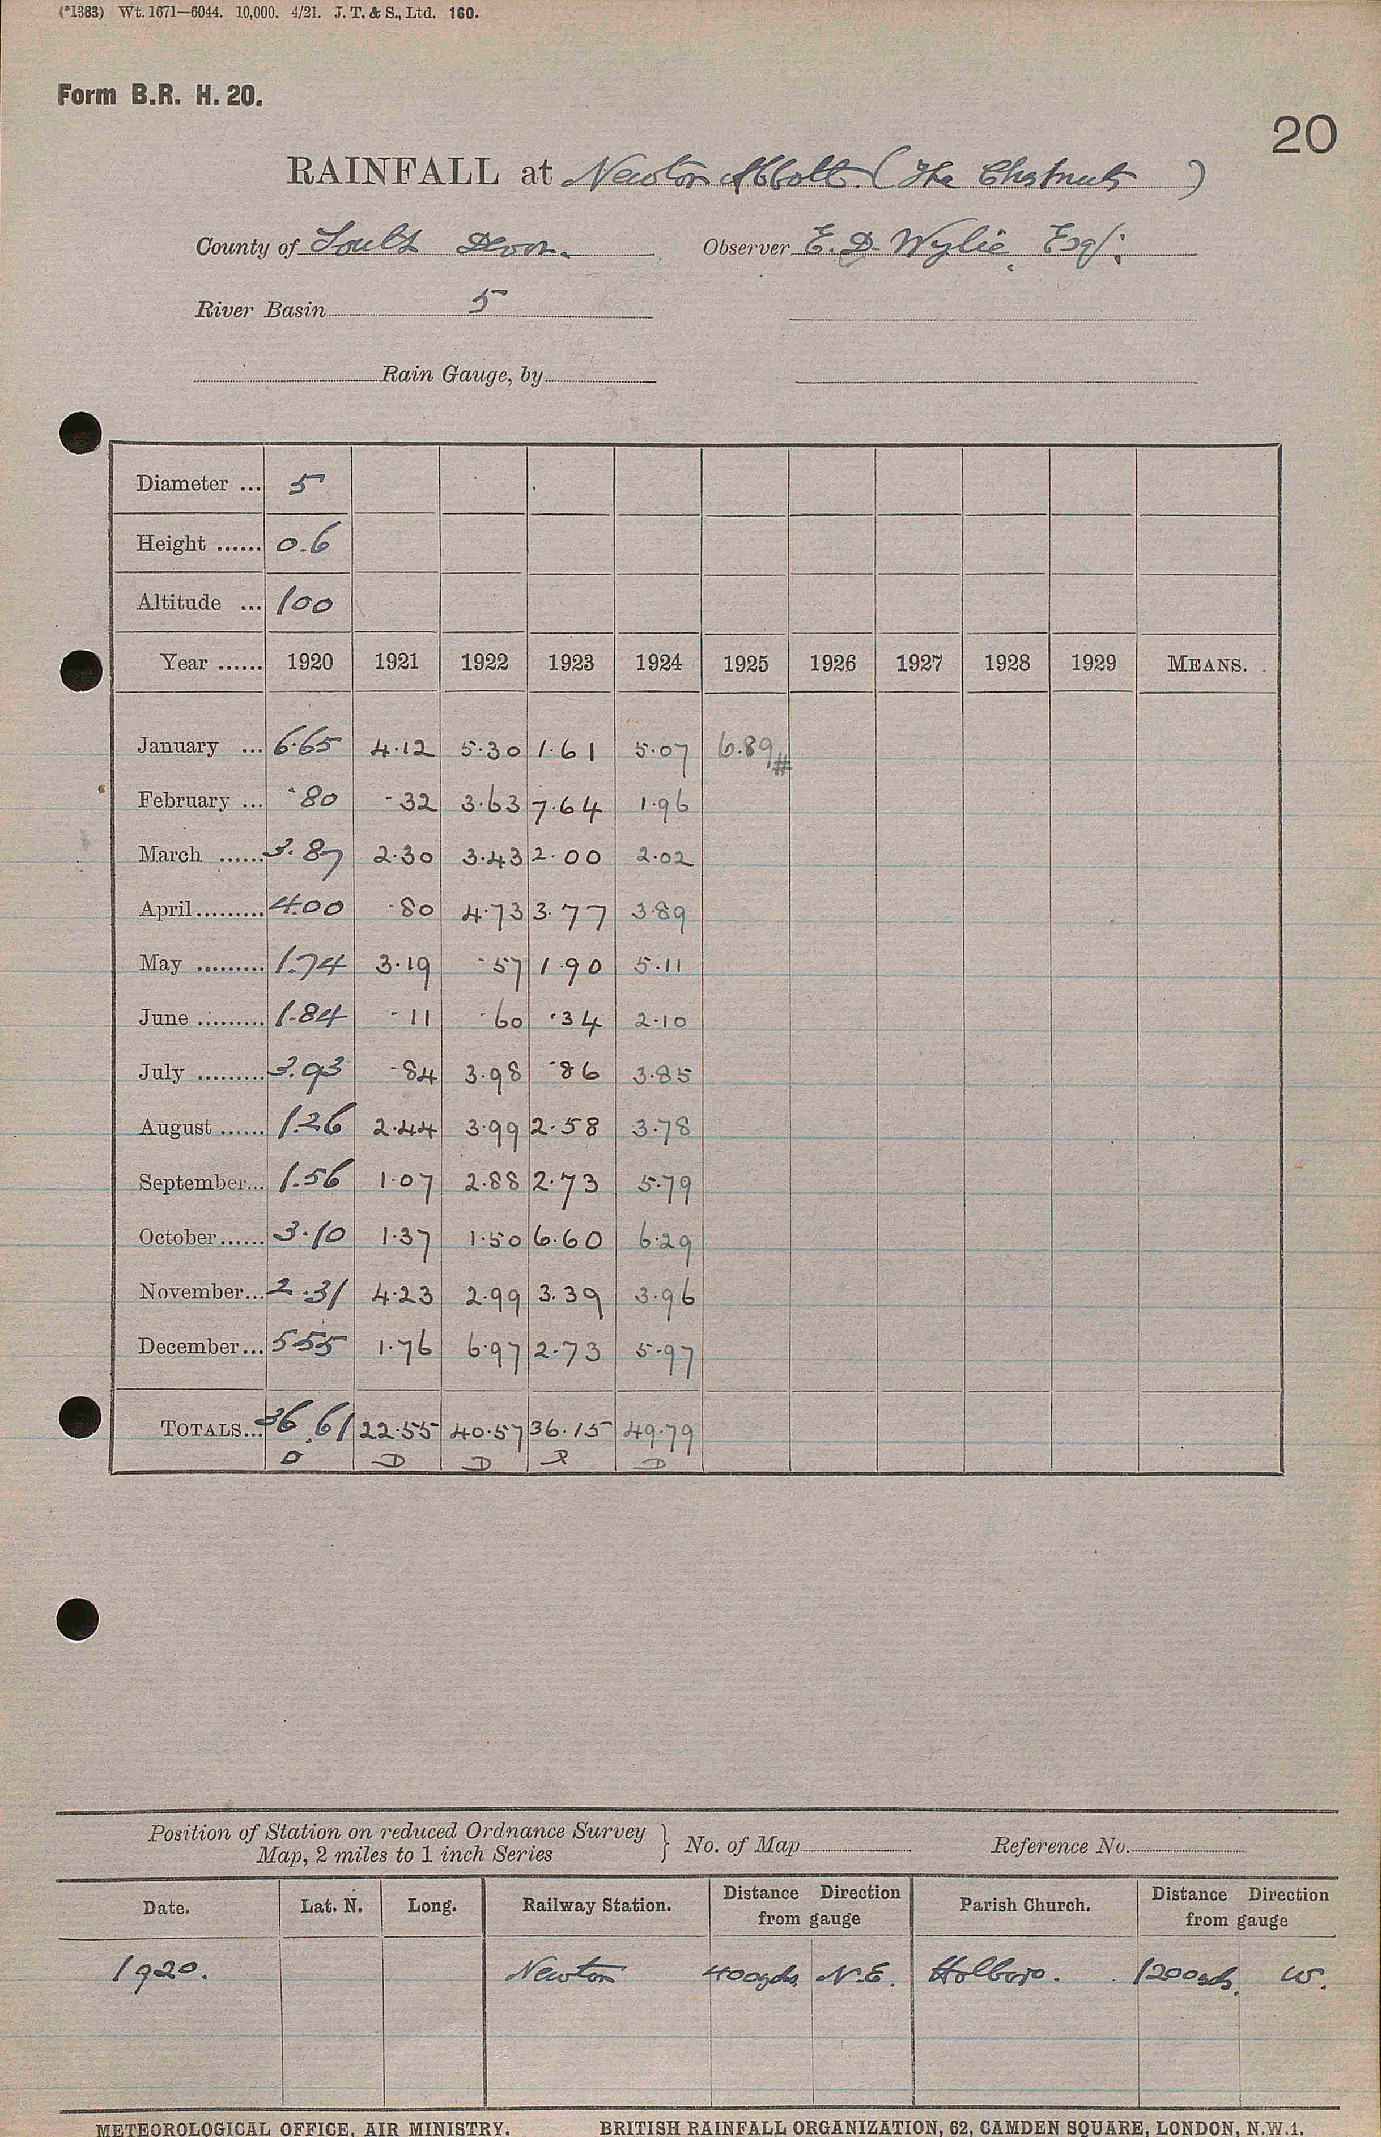 (*1383) Wt. 1671–6044. 10,000. 4/21. J. T. & S., Ltd. 160.
Form B.R. H. 20.
20
RAINFALL at Newton Abbott. (The Chestnuts )
County of South Devon. Observer E. D. Wylie, Esq.
River Basin 5
Rain Gauge, by
Diameter ... 5
Height ...... 0.6
Altitude ... 100
Year ...... 1920 1921 1922 1923 1924 1925 1926 1927 1928 1929 MEANS.
January ... 6.65 4.12 5.30 1.61 5.07 6.89 #
February ... .80 .32 3.63 7.64 1.96
March ...... 3.87 2.30 3.43 2.00 2.02
April ......... 4.00 .80 4.73 3.77 3.89
May ......... 1.74 3.19 .57 1.90 5.11
June ......... 1.84 .11 .60 .34 2.10
July ......... 3.93 .84 3.98 .86 3.85
August ...... 1.26 2.44 3.99 2.58 3.78
September... 1.56 1.07 2.88 2.73 5.79
October ...... 3.10 1.37 1.50 6.60 6.29
November... 2.31 4.23 2.99 3.39 3.96
December... 5.55 1.76 6.97 2.73 5.97
TOTALS... 36.61 22.55 40.57 36.15 49.79
D D D D
Position of Station on reduced Ordnance Survey
Map, 2 miles to 1 inch Series } No. of Map Reference No.
Date. Lat. N. Long. Railway Station. Distance Direction Parish Church. Distance Direction
from gauge from gauge
1920. Newton 400yds N.E. Holboro. 1200yds. W.
METEOROLOGICAL OFFICE, AIR MINISTRY. BRITISH RAINFALL ORGANIZATION, 62, CAMDEN SQUARE, LONDON, N.W.1.